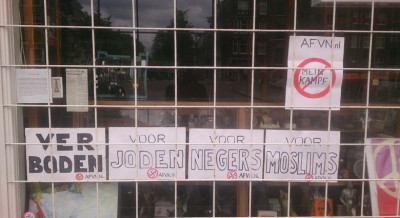 AFVN.nl
MEIN
KAMPF
VER
BODEN
AFVN.nl
VOOR
JODEN
AFVN.nl
VOOR
NEGERS
AFVN.nl
VOOR
MOSLIMS
AFVN.nl